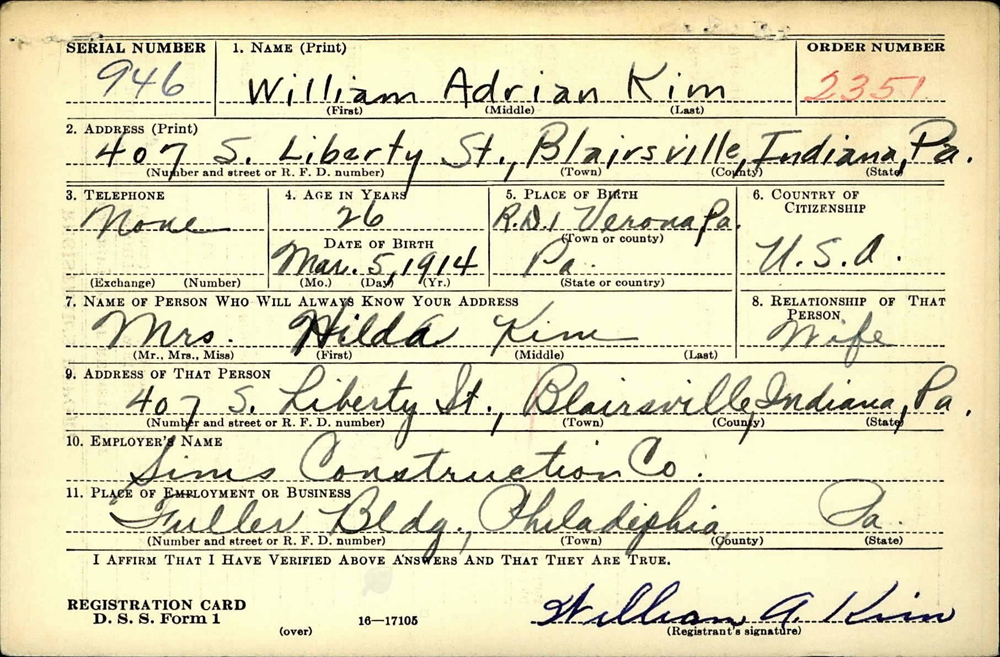 SERIAL NUMBER 1. NAME (Print) ORDER NUMBER
946 William Adrian Kim 2351
(First) (Middle) (Last)
2. ADDRESS (Print)
407 S. Liberty St., Blairsville, Indiana, Pa.
(Number and street or R. F. D. number) (Town) (County) (State)
3. TELEPHONE 4. AGE IN YEARS 5. PLACE OF BIRTH 6. COUNTRY OF CITIZENSHIP
None 26 R.D.1 Verona, Pa.
DATE OF BIRTH (Town or county)
Mar. 5, 1914 Pa. U.S.A.
(Exchange) (Number) (Mo.) (Day) (Yr.) (State or country)
7. NAME OF PERSON WHO WILL ALWAYS KNOW YOUR ADDRESS 8. RELATIONSHIP OF THAT PERSON
Mrs. Hilda Kim Wife
(Mr., Mrs., Miss) (First) (Middle) (Last)
9. ADDRESS OF THAT PERSON
407 S. Liberty St., Blairsville, Indiana, Pa.
(Number and street or R. F. D. number) (Town) (County) (State)
10. EMPLOYER'S NAME
Sims Construction Co.
11. PLACE OF EMPLOYMENT OR BUSINESS
Fuller Bldg., Philadephia, Pa.
(Number and street or R. F. D. number) (Town) (County) (State)
I AFFIRM THAT I HAVE VERIFIED ABOVE ANSWERS AND THAT THEY ARE TRUE.
REGISTRATION CARD
D. S. S. Form 1 16—17105 William A. Kim
(over) (Registrant's signature)